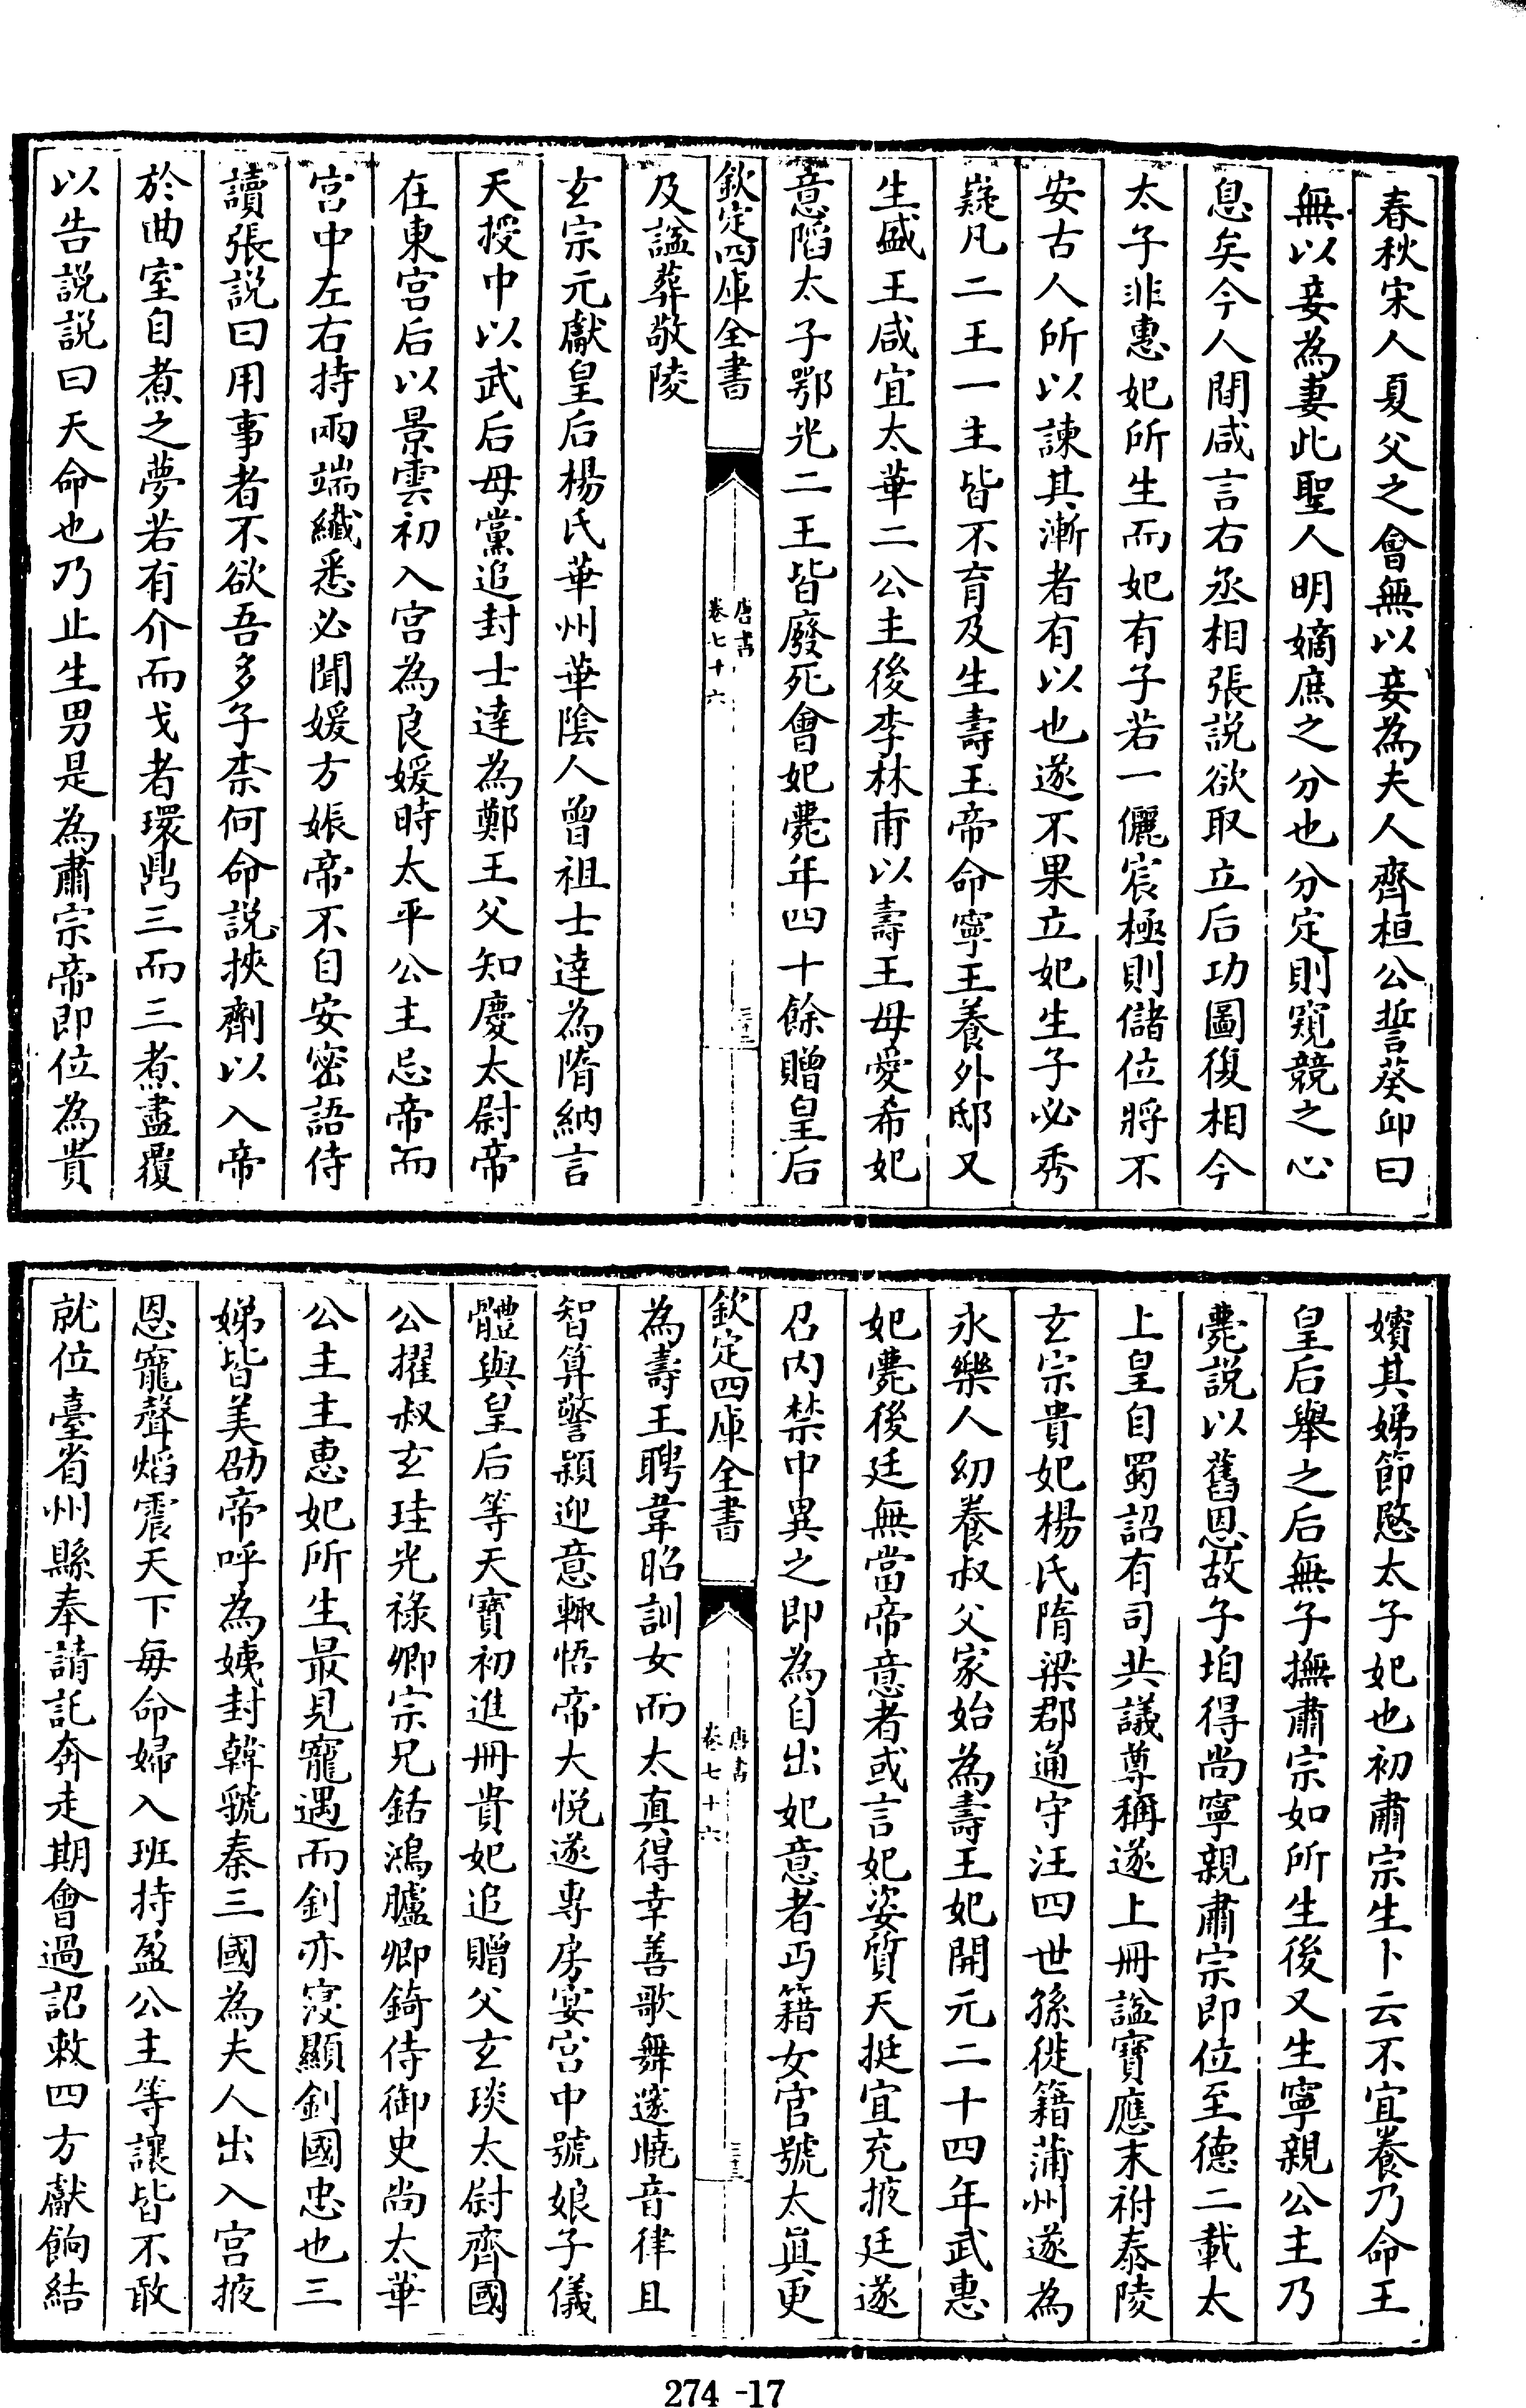 春秋宋人夏父之會無以妾為夫人齊桓公誓葵丘曰
無以妾為妻此聖人明嫡庶之分也分定則窺競之心
息矣今人間咸言右丞相張説欲取立后功圖復相今
太子非惠妃所生而妃有子若一儷宸極則儲位將不
安古人所以諫其漸者有以也遂不果立妃生子必秀
嶷凡二王一主皆不育及生壽王帝命寧王養外邸又
生盛王咸宜太華二公主後李林甫以壽王母愛希妃
意陷太子鄂光二王皆廢死會妃薨年四十餘贈皇后
欽定四庫全書
唐書
卷七十六
三十二
及諡葬敬陵
玄宗元獻皇后楊氏華州華陰人曾祖士達為隋納言
天授中以武后母黨追封士達為鄭王父知慶太尉帝
在東宫后以景雲初入宫為良媛時太平公主忌帝而
宫中左右持兩端纖悉必聞媛方娠帝不自安密語侍
讀張説曰用事者不欲吾多子柰何命説挾劑以入帝
於曲室自煮之夢若有介而戈者環鼎三而三煮盡覆
以告説説曰天命也乃止生男是為肅宗帝即位為貴
嬪其娣節愍太子妃也初肅宗生卜云不宜養乃命王
皇后舉之后無子撫肅宗如所生後又生寧親公主乃
薨説以舊恩故子垍得尚寧親肅宗即位至德二載太
上皇自蜀詔有司共議尊稱遂上冊諡寶應末祔泰陵
玄宗貴妃楊氏隋梁郡通守汪四世孫徙籍蒲州遂為
永樂人幼養叔父家始為壽王妃開元二十四年武惠
妃薨後廷無當帝意者或言妃姿質天挺宜充掖廷遂
召内禁中異之即為自出妃意者丐籍女官號太真更
欽定四庫全書
唐書
卷七十六
三十三
為壽王聘韋昭訓女而太真得幸善歌舞邃曉音律且
智算警頴迎意輙悟帝大悦遂專房宴宫中號娘子儀
體與皇后等天寶初進冊貴妃追贈父玄琰太尉齊國
公擢叔玄珪光祿卿宗兄銛鴻臚卿錡侍御史尚太華
公主主惠妃所生最見寵遇而釗亦寖顯釗國忠也三
娣皆美劭帝呼為姨封韓虢秦三國為夫人出入宫掖
恩寵聲焰震天下每命婦入班持盈公主等讓皆不敢
就位臺省州縣奉請託奔走期會過詔敕四方獻餉結
274-17